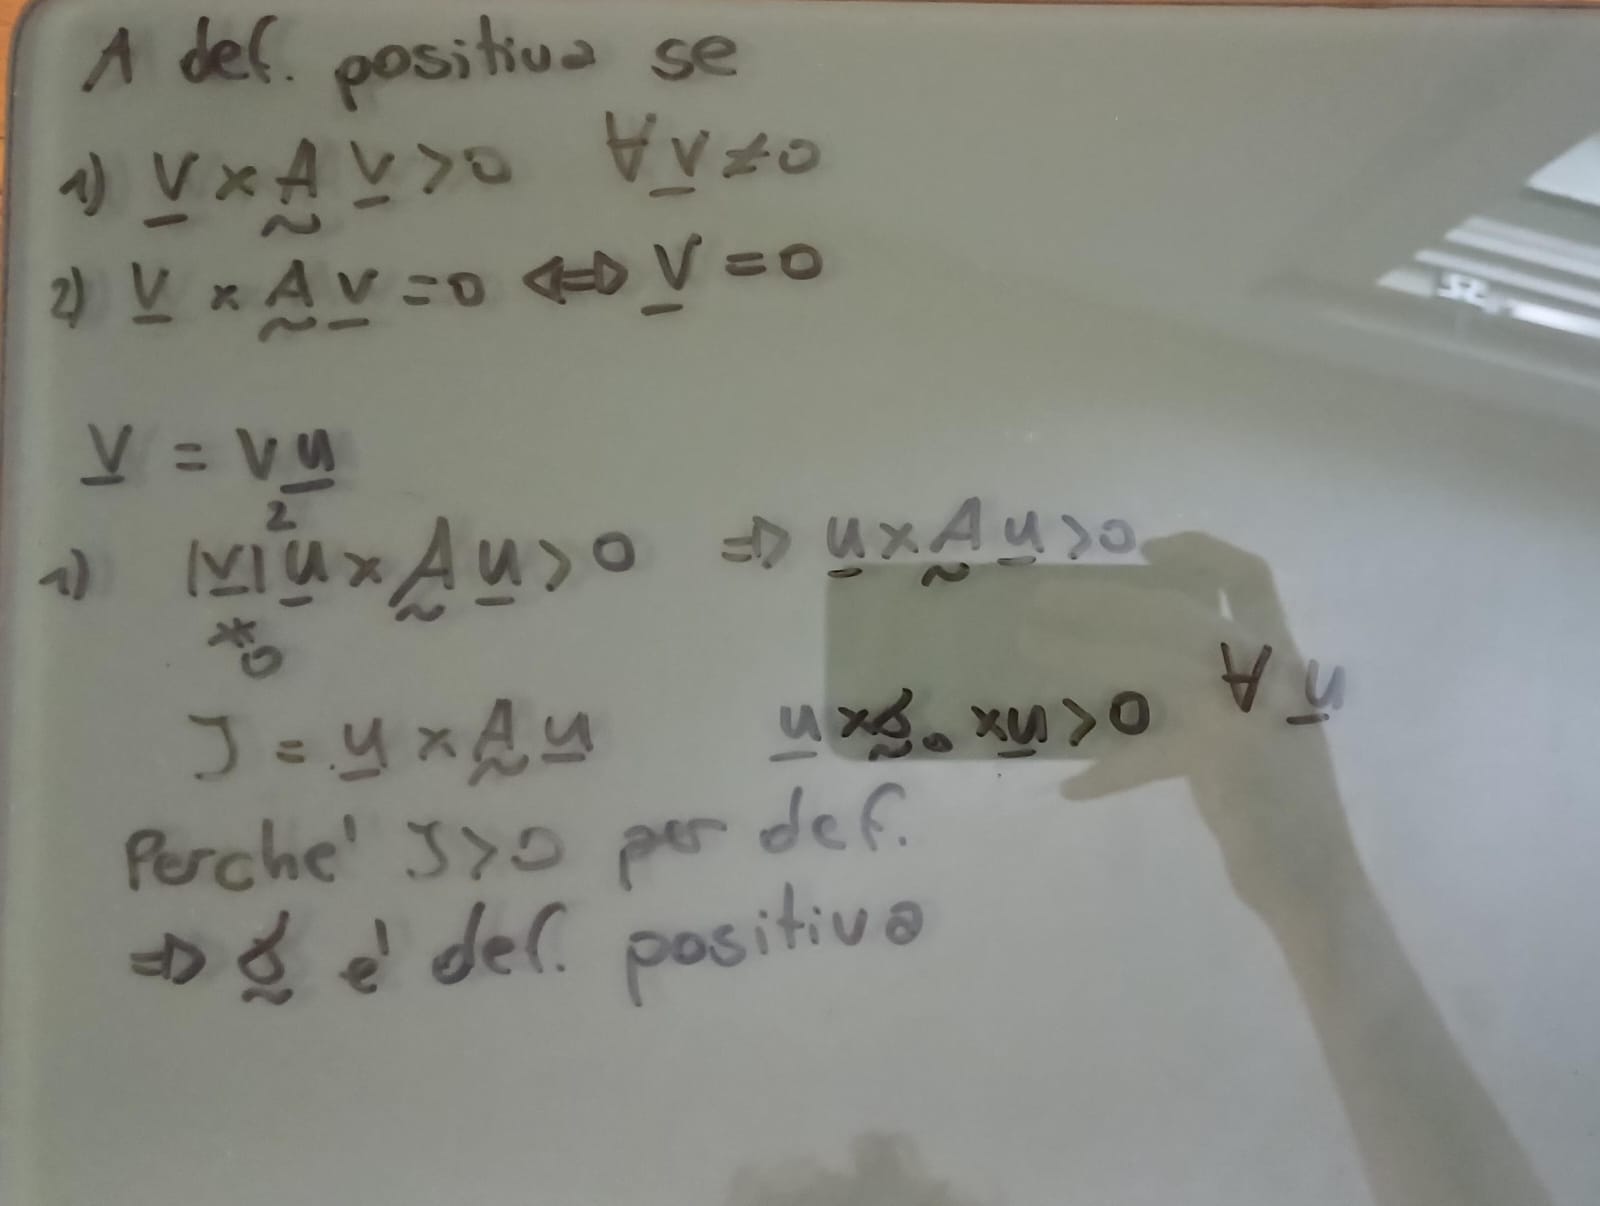 A def. positiva se
1) v x A v > 0 ∀ v ≠ 0
2) v x A v = 0 ⇔ v = 0
v = v u
1) |v|² u x A u > 0 ⇒ u x A u > 0
≠ 0
J = u x A u u x I₀ x u > 0 ∀ u
Perche' J > 0 per def.
⇒ I e' def. positiva